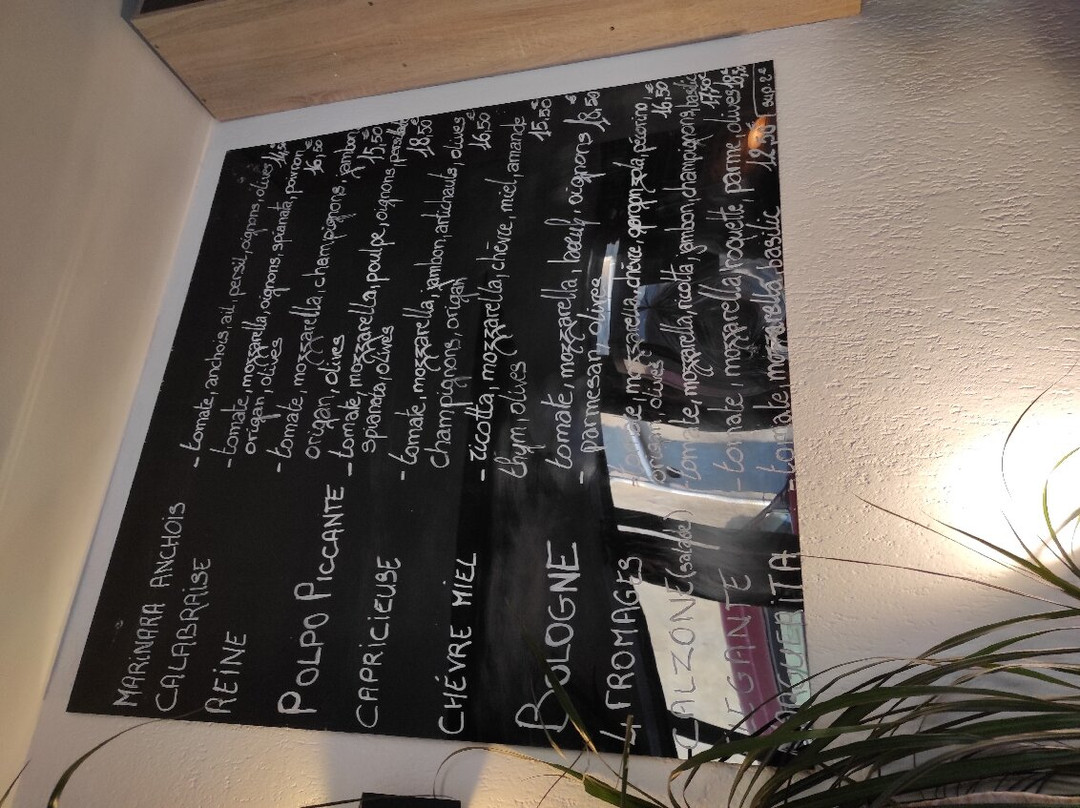 MARINARA ANCHOIS - tomate, anchois, ail, persil, oignons, olives
CALABRAISE - tomate, mozzarella, oignons, spianata, poivron, 16,50€
origan, olives
REINE - tomate, mozzarella, champignons, jambon 15,50€
origan, olives
POLPO PICCANTE - tomate, mozzarella, poulpe, oignons, persillade 18,50€
spianata, olives
CAPRICIEUSE - tomate, mozzarella, jambon, artichauts, olives 16,50€
champignons, origan
CHÉVRE MIEL - ricotta, mozzarella, chévre, miel, amande 15,50€
thym, olives
BOLOGNE - tomate, mozzarella, bœuf, oignons 18,50€
parmesan, olives
4 FROMAGES - tomate, mozzarella, chévre, gorgonzola, pecorino, 16,50€
origan, olives
CALZONE (salade) - tomate, mozzarella, ricotta, jambon, champignons, basilic 17,50€
- tomate, mozzarella, roquette, parme, olives
MARGUERITA - tomate, mozzarella, basilic 12,50€ sup 2€